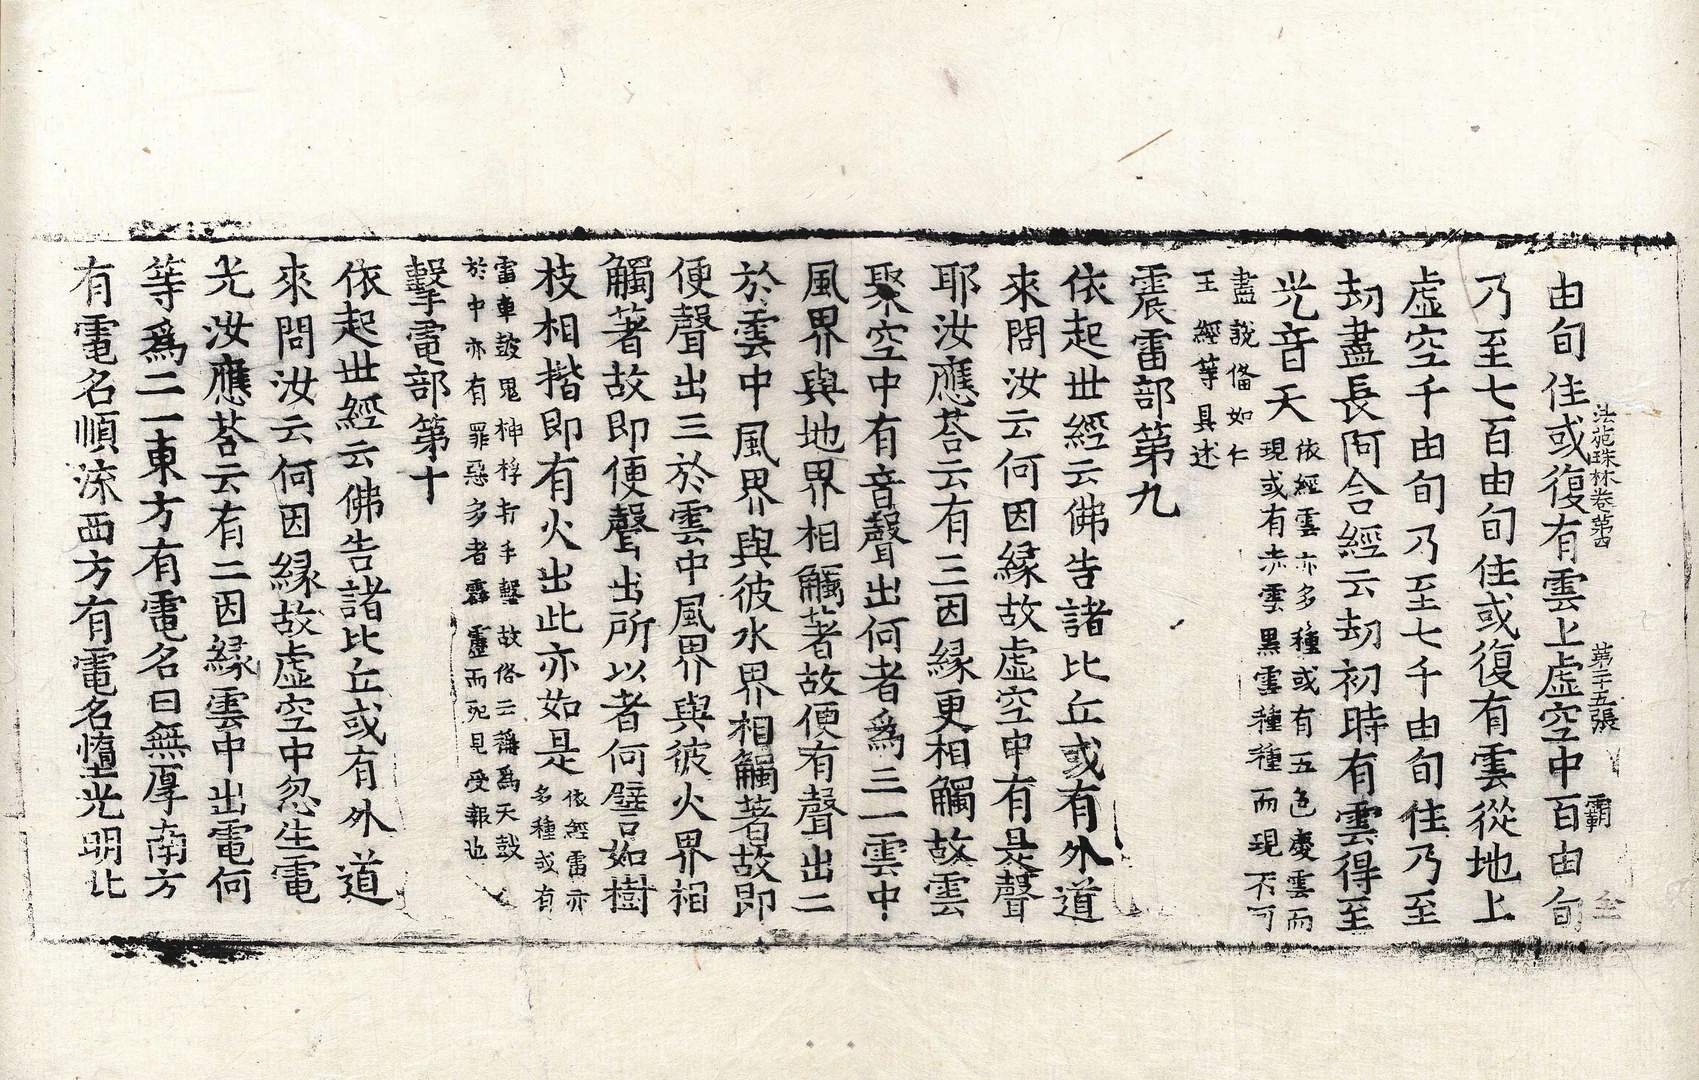 法苑珠林卷第四　第二十五張　霸
由旬住或復有雲上虛空中百由旬
乃至七百由旬住或復有雲從地上
虛空千由旬乃至七千由旬住乃至
劫盡長阿含經云劫初時有雲得至
光音天依經雲亦多種或有五色慶雲而
現或有赤雲黑雲種種而現不可
盡說俻如仁
王經等具述
震雷部第九
依起世經云佛告諸比丘或有外道
來問汝云何因緣故虛空中有是聲
耶汝應荅云有三因緣更相觸故雲
聚空中有音聲出何者為三一雲中
風界與地界相觸著故便有聲出二
於雲中風界與彼水界相觸著故即
便聲出三於雲中風界與彼火界相
觸著故即便聲出所以者何譬如樹
枝相揩即有火出此亦如是依經雷亦
多種或有
雷車鼓鬼神桴打手擊故俗云稱為天鼓
於中亦有罪惡多者霹靂而死見受報也
擊電部第十
依起世經云佛告諸比丘或有外道
來問汝云何因緣故虛空中忽生電
光汝應荅云有二因緣雲中出電何
等為二一東方有電名曰無厚南方
有電名順流西方有電名墮光明北